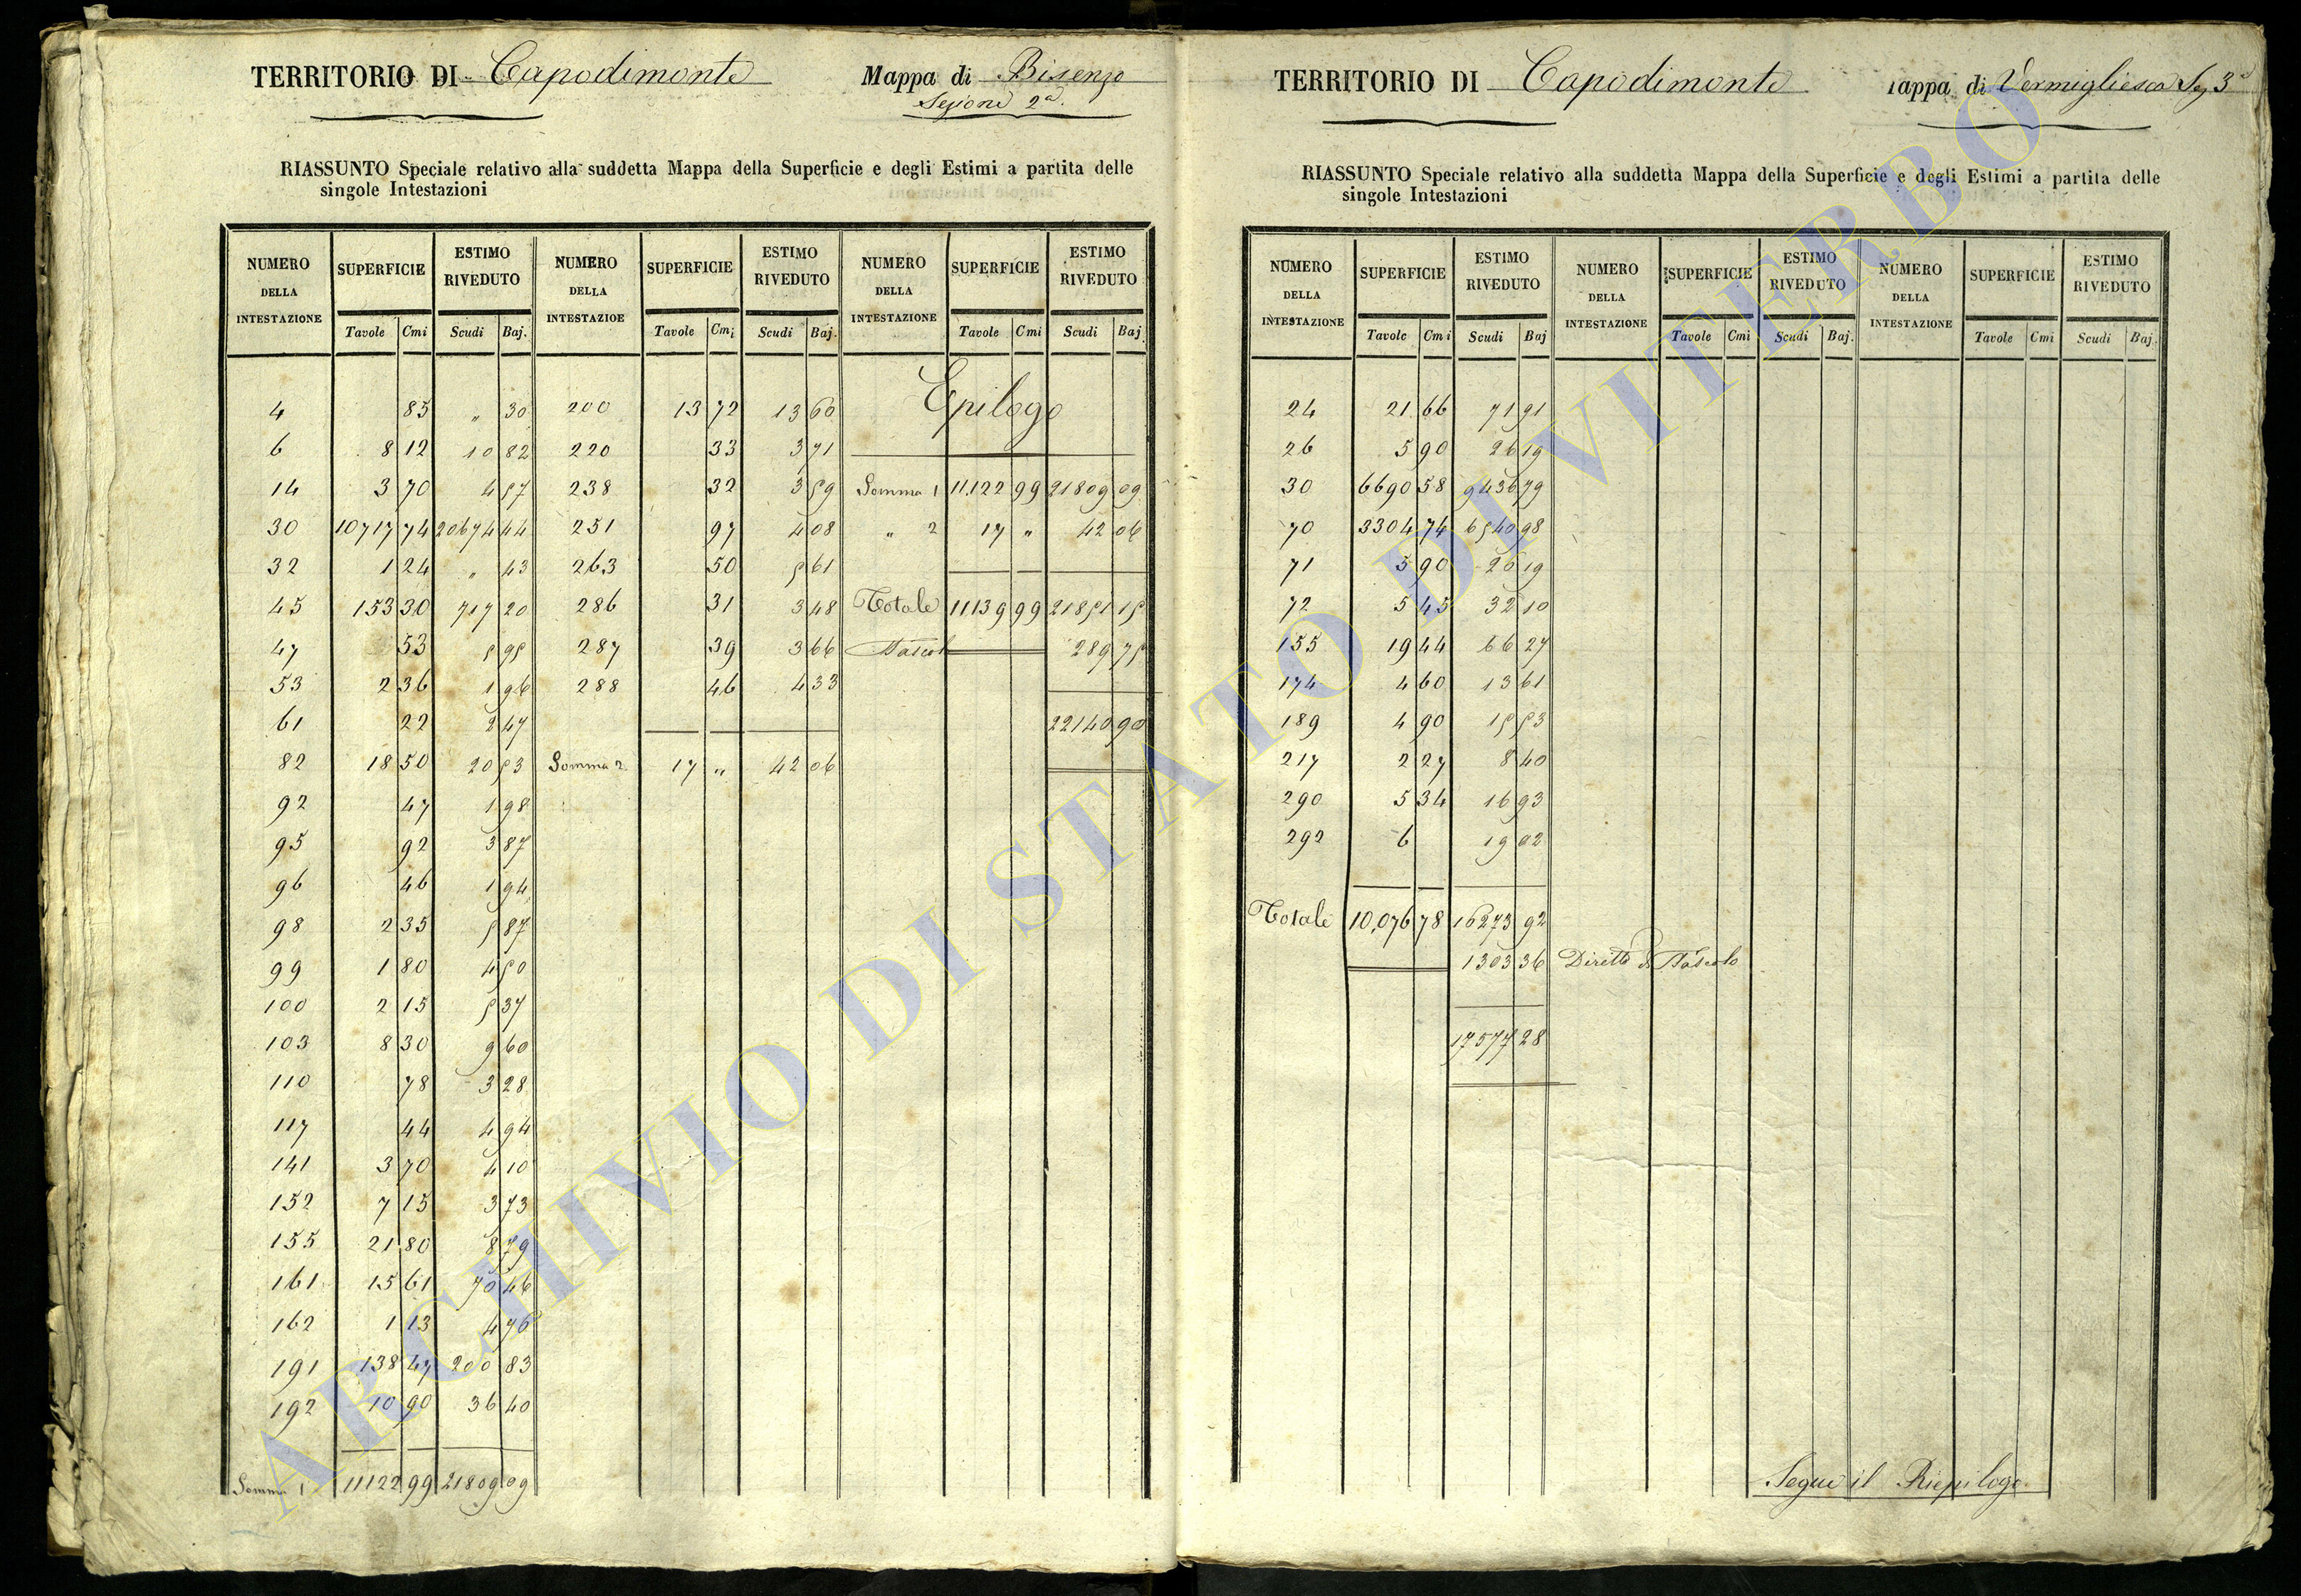 TERRITORIO DI Capodimonte Mappa di Bisenzo
Sezione 2a.
RIASSUNTO Speciale relativo alla suddetta Mappa della Superficie e degli Estimi a partita delle
singole Intestazioni
NUMERO DELLA INTESTAZIONE SUPERFICIE ESTIMO RIVEDUTO NUMERO DELLA INTESTAZIOE SUPERFICIE ESTIMO RIVEDUTO NUMERO DELLA INTESTAZIONE SUPERFICIE ESTIMO RIVEDUTO
Tavole Cmi Scudi Baj. Tavole Cmi Scudi Baj. Tavole Cmi Scudi Baj.
4 85 " 30 200 13 72 13 60 Epilogo
6 8 12 10 82 220 33 3 71
14 3 70 4 57 238 32 3 59 Somma 1 11.122 99 21809 09
30 10717 74 20674 44 251 97 4 08 " 2 17 " 42 06
32 1 24 " 43 263 50 5 61
45 153 30 717 20 286 31 3 48 Totale 11139 99 21851 15
47 53 5 95 287 39 3 66 Pascol 289 75
53 2 36 1 96 288 46 4 33
61 22 2 47 22140 90
82 18 50 20 53 Somma 2 17 " 42 06
92 47 1 98
95 92 3 87
96 46 1 94
98 2 35 5 87
99 1 80 4 50
100 2 15 5 37
103 8 30 9 60
110 78 3 28
117 44 4 94
141 3 70 4 10
152 7 15 3 73
155 21 80 8 79
161 15 61 70 46
162 1 13 4 76
191 138 47 200 83
192 10 90 36 40
Somma 1 11122 99 21809 09
TERRITORIO DI Capodimonte appa di Vermigliesca Sez 3a
RIASSUNTO Speciale relativo alla suddetta Mappa della Superficie e degli Estimi a partita delle
singole Intestazioni
NUMERO DELLA INTESTAZIONE SUPERFICIE ESTIMO RIVEDUTO NUMERO DELLA INTESTAZIONE SUPERFICIE ESTIMO RIVEDUTO NUMERO DELLA INTESTAZIONE SUPERFICIE ESTIMO RIVEDUTO
Tavole Cmi Scudi Baj Tavole Cmi Scudi Baj. Tavole Cmi Scudi Baj.
24 21 66 71 91
26 5 90 26 19
30 6690 58 9436 79
70 3304 74 6540 98
71 5 90 26 19
72 5 45 32 10
155 19 44 66 27
174 4 60 13 61
189 4 90 15 53
217 2 27 8 40
290 5 34 16 93
292 6 19 02
Totale 10,076 78 16273 92
1303 36 Diritto di Pascolo
17577 28
Segue il Riepilogo
ARCHIVIO DI STATO DI VITERBO